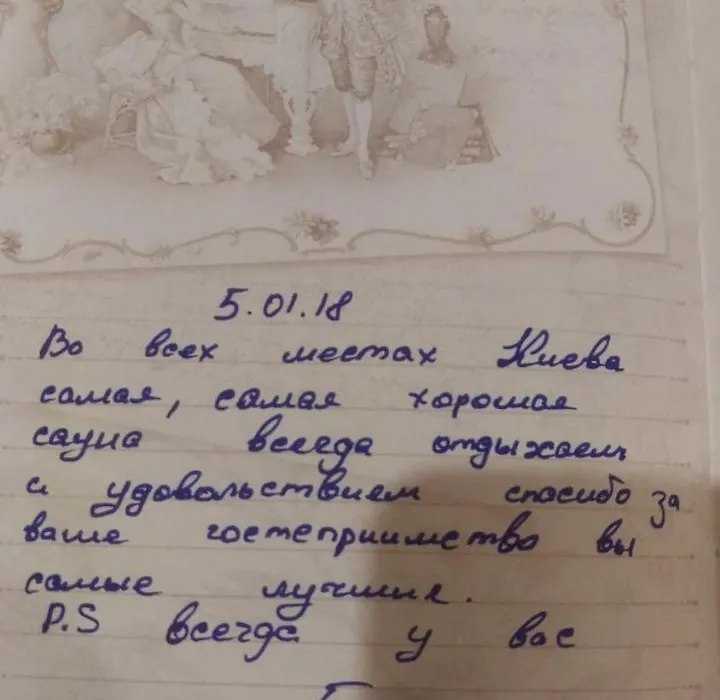 5.01.18
Во всех местах Киева
самая, самая хорошая
сауна всегда отдыхаем
с удовольствием спасибо за
ваше гостеприимство вы
самые лучшие.
P.S всегда у вас